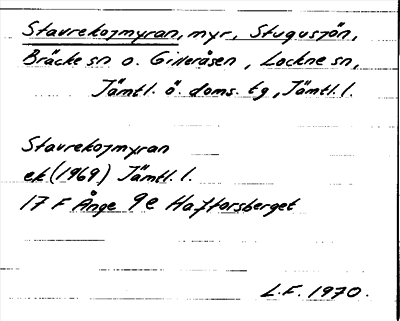 Stavrekojmyran, myr, Stugusjön,
Bräcke sn o. Gilleråsen, Lockne sn,
Jämtl. ö. doms. tg, Jämtl. l.
Stavrekojmyran
ek (1969) Jämtl. l.
17 F Ånge 9e Haftorsberget
L.F. 1970.